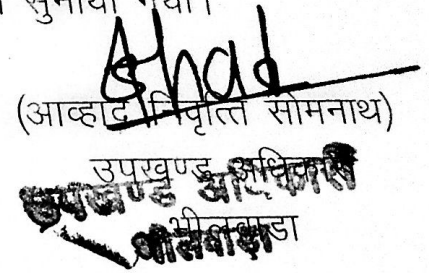 सुनाया गया।
(आव्हाद निवृत्ति सोमनाथ)
उपखण्ड अधिकारी
उपखण्ड अधिकारी
भीलवाडा
भीलवाड़ा